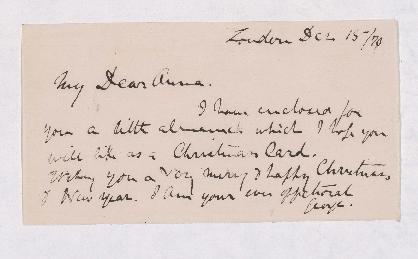 London Dec 15/70
My Dear Anna.
I have enclosed for
you a little almanack which I hope you
will like as a Christmas Card.
Wishing you a very merry & happy Christmas
& New Year. I am your ever affectionat
George.